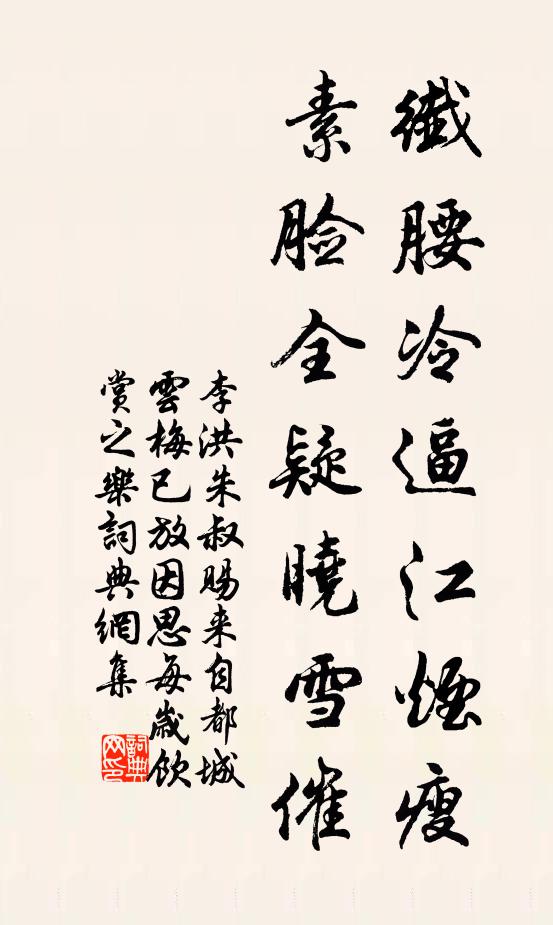 纖腰冷逼江煙瘦
素脸全疑曉雪催
李洪朱叔賜来自都城
雲梅已放因思每歲飲
賞之樂詞典網集
詞典
网印